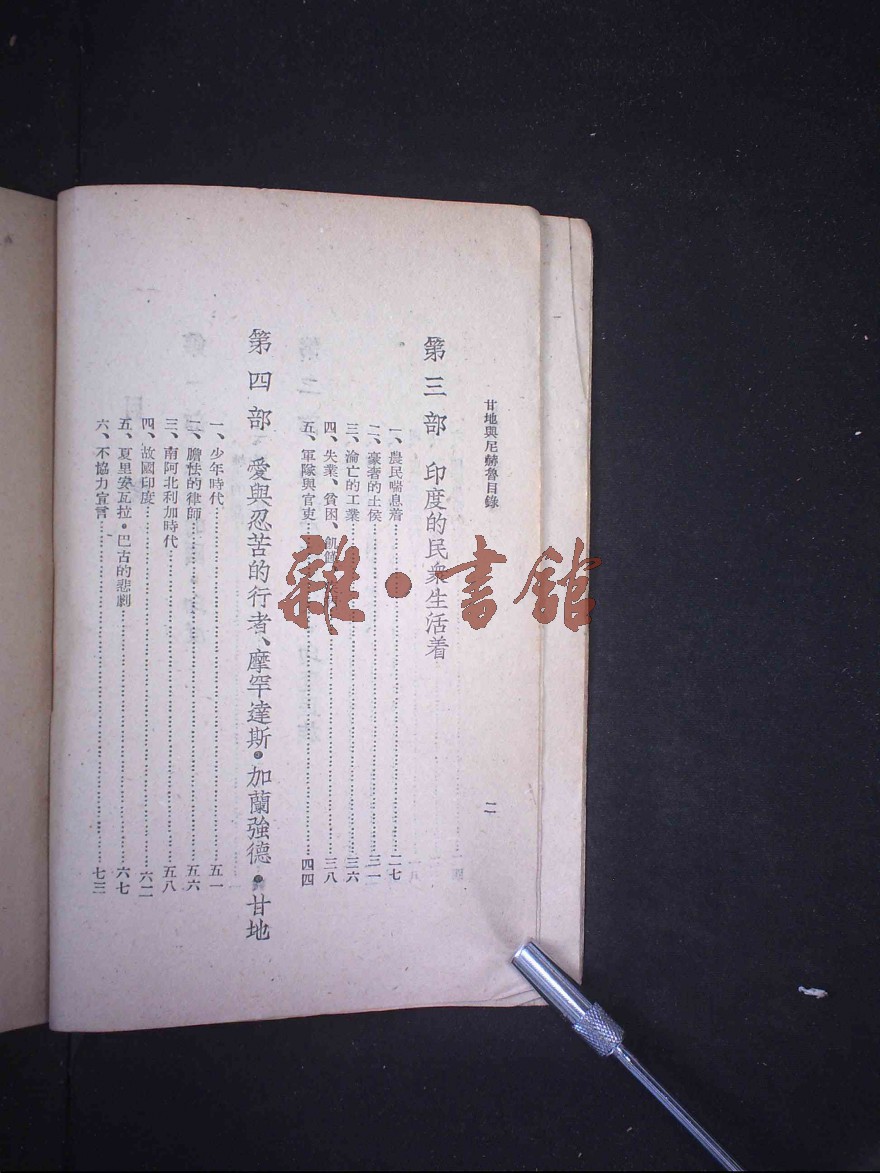 甘地與尼赫魯目錄
二
第三部 印度的民衆生活着
一、農民喘息着……二七
二、豪奢的土侯……三一
三、淪亡的工業……三六
四、失業、貧困、飢饉……三八
五、軍隊與官吏……四四
第四部 愛與忍苦的行者、摩罕達斯・加蘭強德・甘地
一、少年時代……五一
二、膽怯的律師……五六
三、南阿北利加時代……五八
四、故國印度……六二
五、夏里安瓦拉・巴古的悲劇……六七
六、不協力宣言……七三
雜・書館